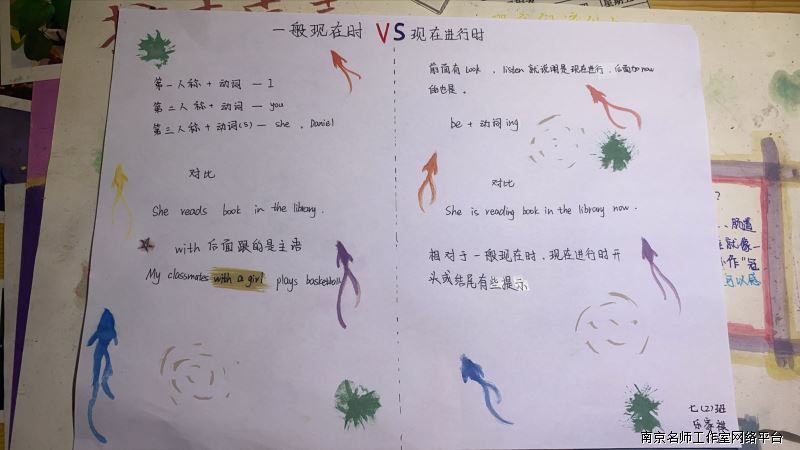 一般现在时 VS 现在进行时
第一人称 + 动词 — I
第二人称 + 动词 — you
第三人称 + 动词(s) — she 、Daniel
对比
She reads book in the library.
with 后面跟的是主语
My classmates with a girl plays basketball
前面有 Look 、listen 就说明是现在进行，后面加 now
的也是。
be + 动词 ing
对比
She is reading book in the library now.
相对于一般现在时，现在进行时开
头或结尾有些提示
七(2)班
乐
南京名师工作室网络平台